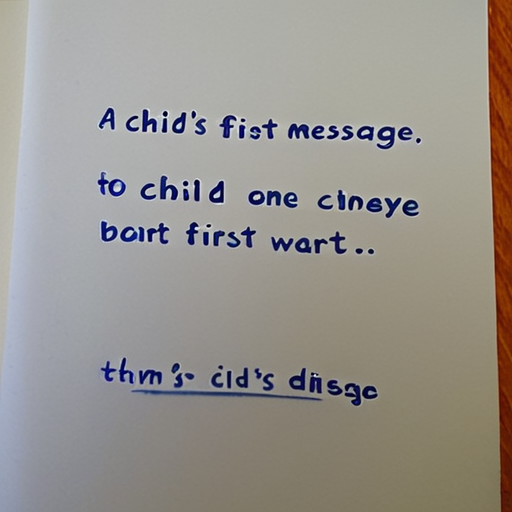 A chid's fist message.
to child one cineye
bairt first wart..
thm's- cid's diisge